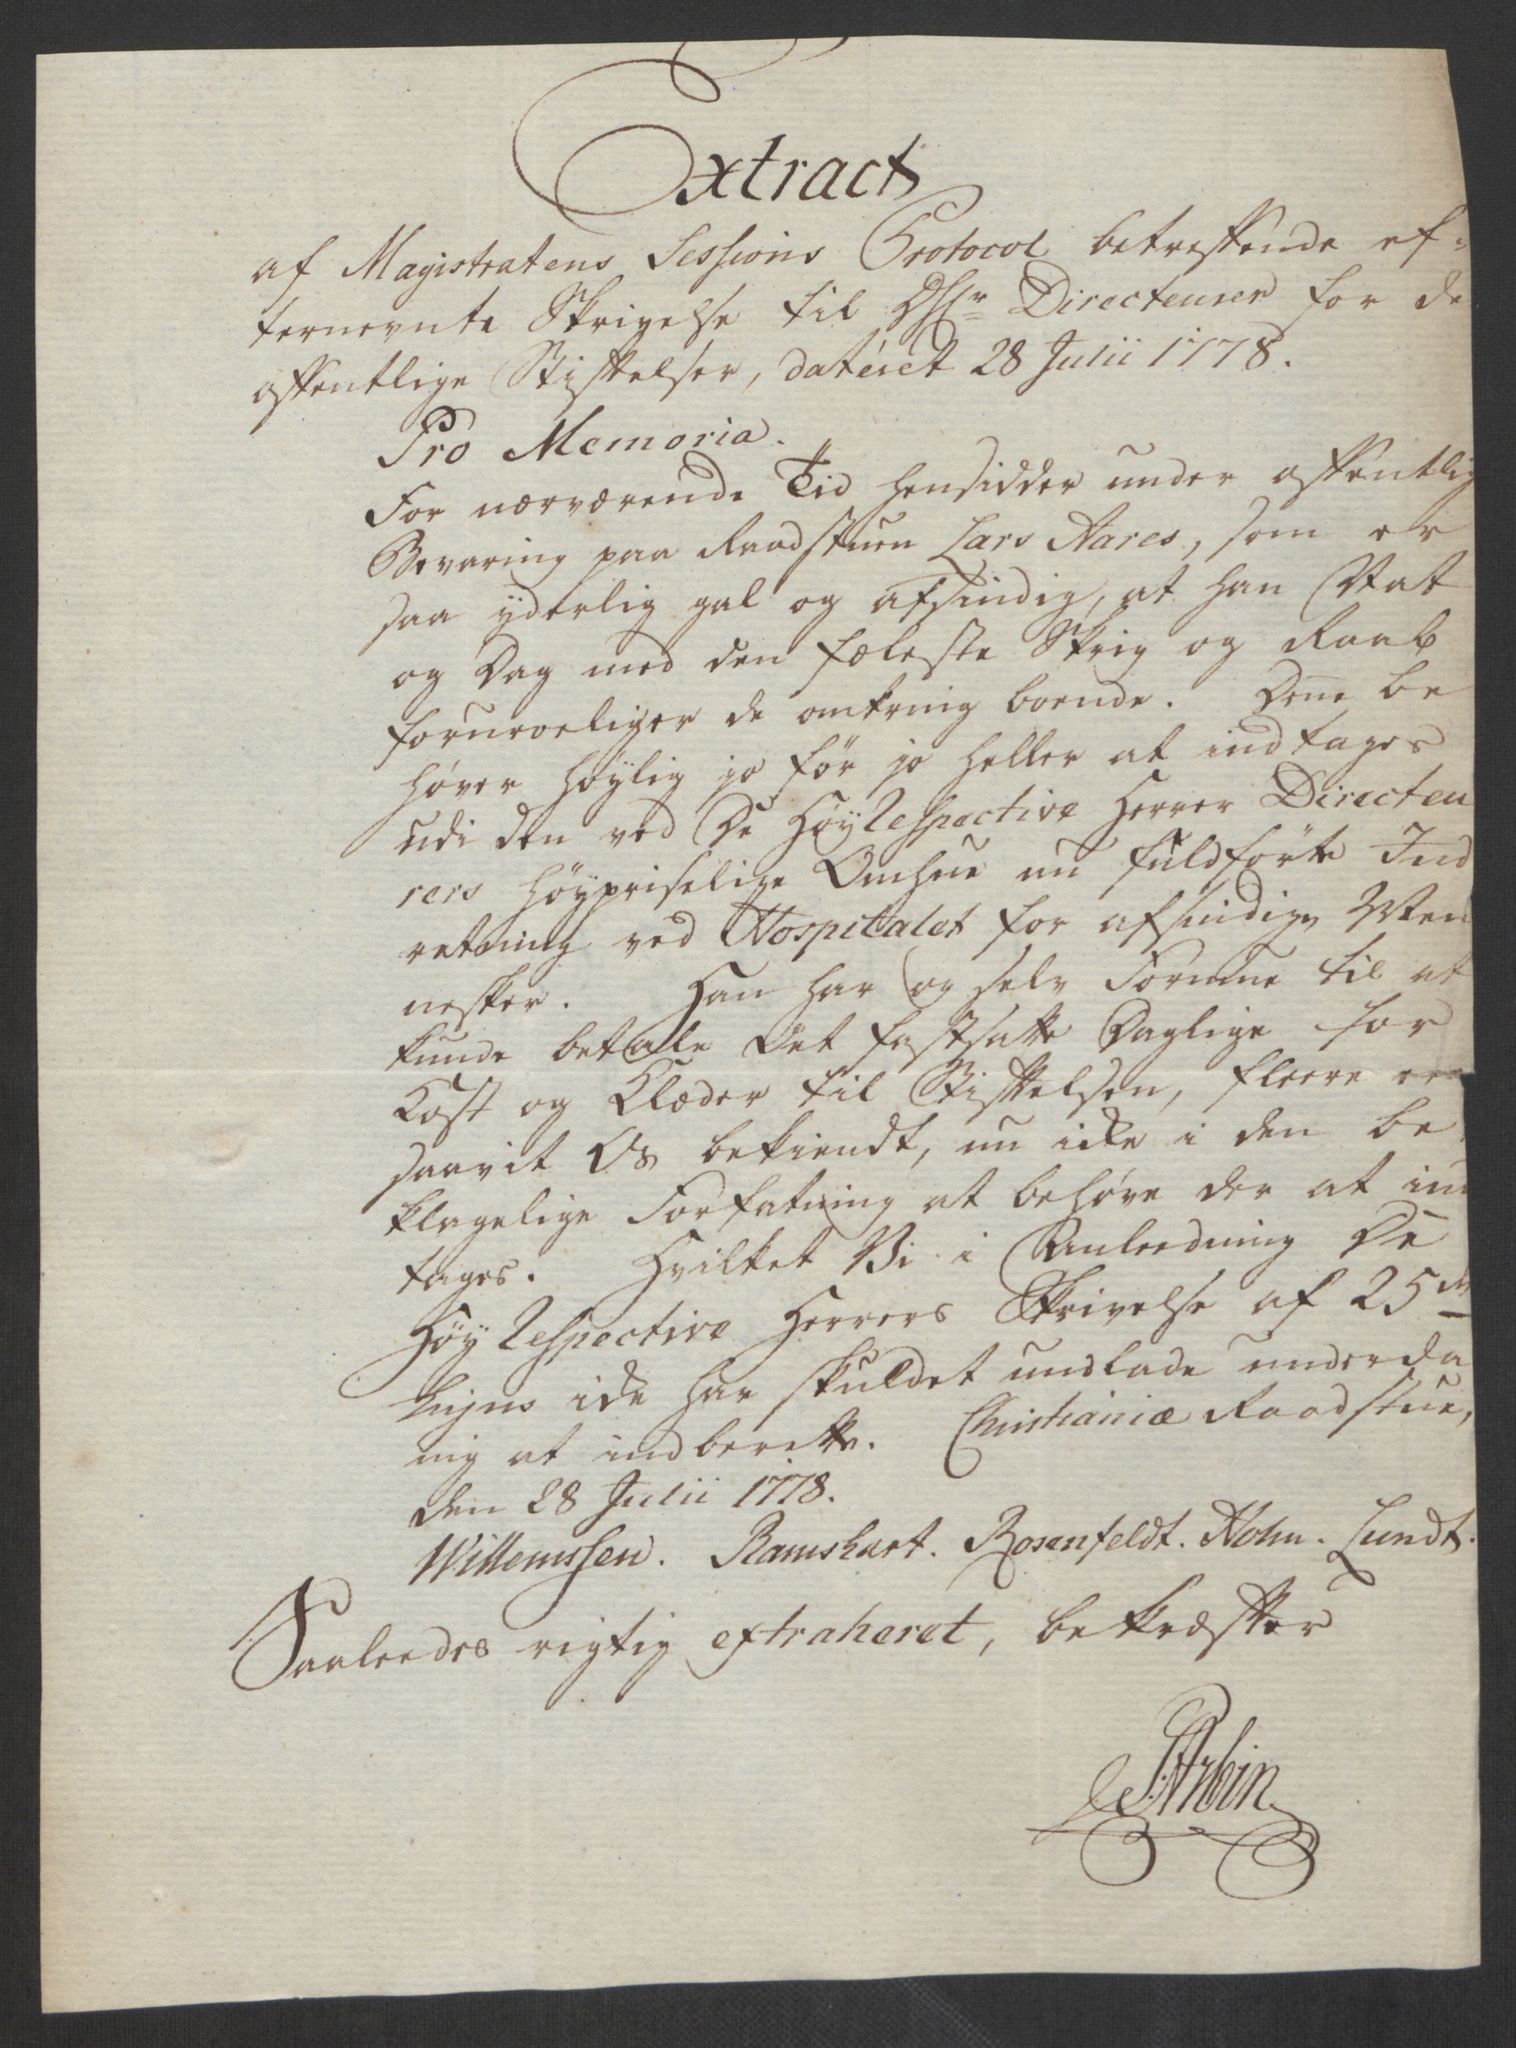 Extract
af Magistratens Sessions Protocol betreffende ef-
ternevnte Skrivelse til DHhr. Directeurer for de
offentlige Stiftelser, dateret 28 Julii 1778.
Pro Memoria.
For nærværende Tid hensidder under offentlig
Bevaring paa Raadstuen Lars Aares, som er
saa yderlig gal og afsindig, at han Nat
og Dag med den fæleste Skrig og Raab
foruroeliger de omkring boende. Denne be
høver høylig jo før jo heller at indtages
udi den ved De HøyRespective Herrer Directeu
rers høypriselige Omhue nu fuldførte Ind
retning ved Hospitalet for afsindige Men
nesker. Han har og selv Formue til at
kunde betale det fastsatte Daglige for
Kost og Klæder til Stiftelsen, fleere ere
saavit Os bekiendt, nu icke i den be
klagelige Forfatning at behøve der at ind
tages. Hvilket Vi i Anleedning De
Høy Respective Herrers Skrivelse af 25de
hujus icke har skuldet undlade underda
nig at indberette. Christianiæ Raadstue,
den 28 Julii 1778.
Willemssen. Ramshart. Rosenfeldt. Holm. Lundt.
Saaleedes rigtig extraheret, bekræfter
Arbin